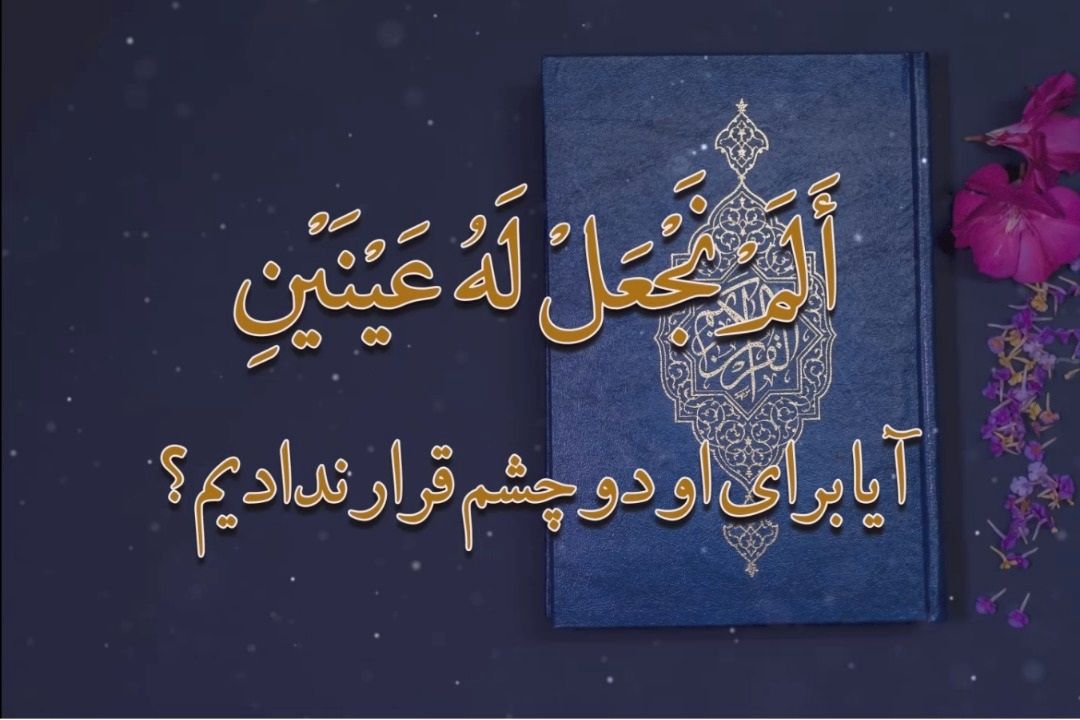 أَلَمْ نَجْعَلْ لَهُ عَيْنَيْنِ
القرآن الكريم
آیا برای او دو چشم قرار ندادیم؟